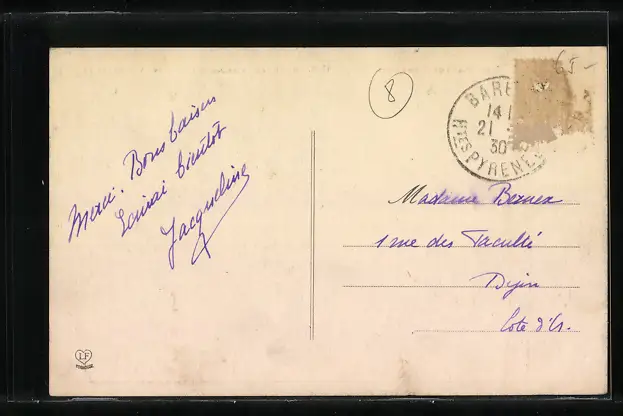 Merci. Bons baisers
Ecrirai bientôt
Jacqueline
8
65-
BARE
14 1
21
30
HTES PYRENEES
Madame Bernex
1 rue des Faculté
Dijon
Côte d'Or.
LF